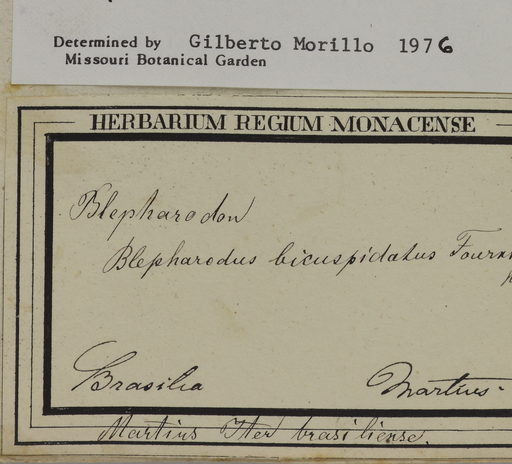 Determined by Gilberto Morillo 1976
Missouri Botanical Garden
HERBARIUM REGIUM MONACENSE
Blepharodon
Blepharodus bicuspidatus Fourn
Brasilia Martius.
Martius Iter brasiliense.